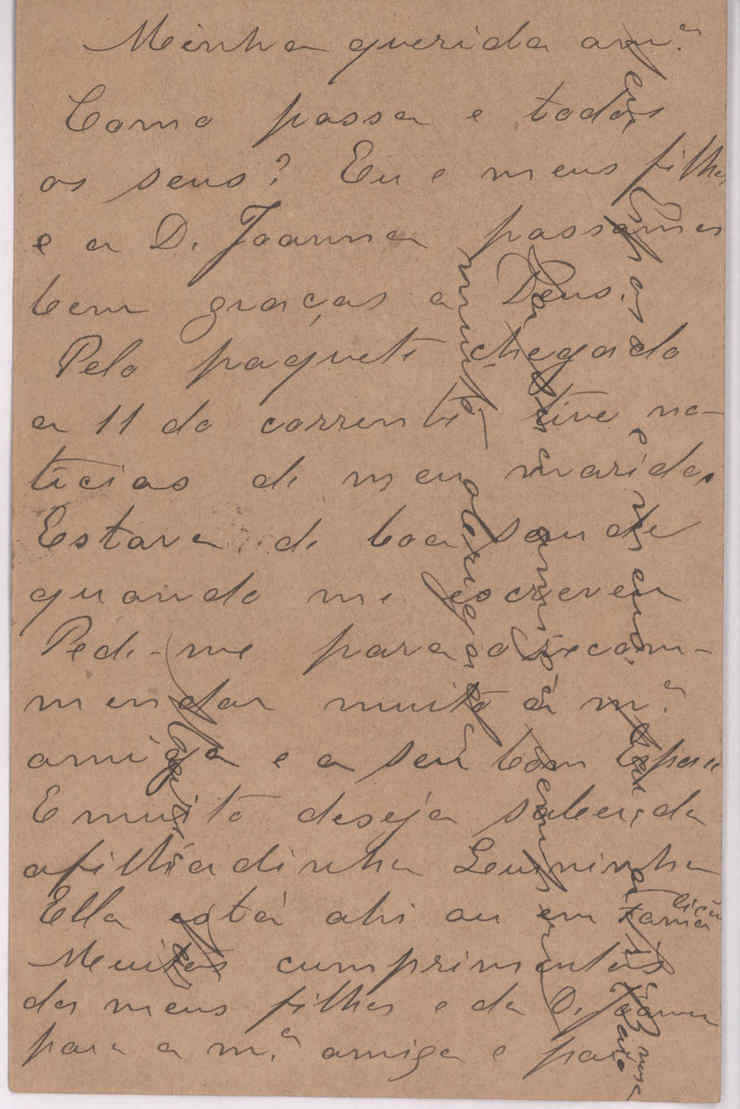 Minha querida am.ª
Como passa e todos
os seus? Eu e meus filhos
e a D. Joanna passamos
bem graças a Deus.
Pelo paquete chegado
a 11 do corrente tive no-
ticias de meu marido.
Estava de boa saude
quando me escreveu
Pede-me para o recom-
mendar muito á m.ª
amiga e a seu bom Esposo
E muito deseja saber da
afilhadinha
Ella está ahi ou em
Muitos cumprimentos
dos meus filhos e da D. Joanna
para a m.ª amiga e para
seu Esposo e meus
da sua amiga
muito obrigada
Maria